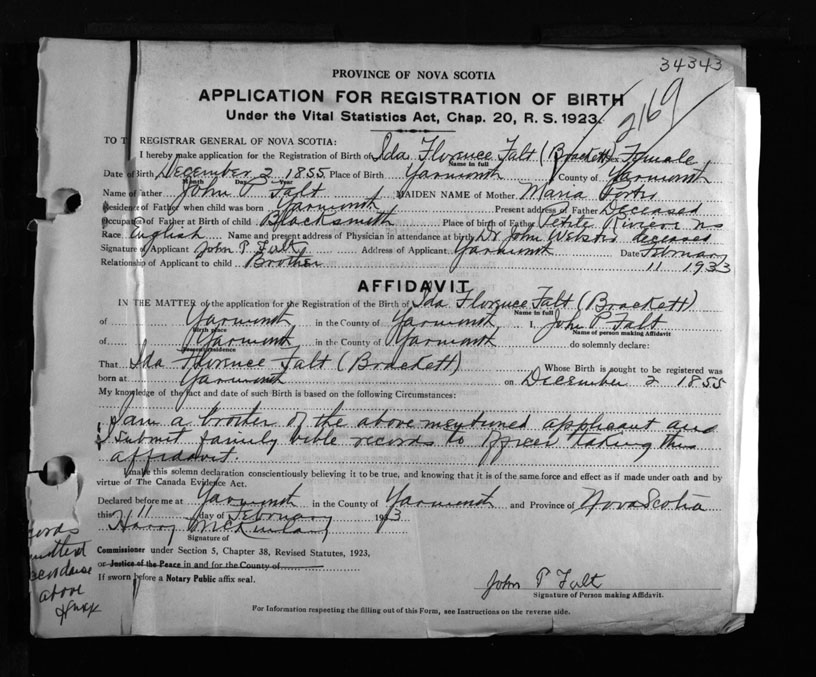 34343
2169
PROVINCE OF NOVA SCOTIA
APPLICATION FOR REGISTRATION OF BIRTH
Under the Vital Statistics Act, Chap. 20, R. S. 1923.
TO T REGISTRAR GENERAL OF NOVA SCOTIA:
I hereby make application for the Registration of Birth of Ida Florence Falt (Brackett) Female
Name in full
Date of Birth December 2 1855 Place of Birth Yarmouth County of Yarmouth
Month Day Year
Name of Father John P. Falt MAIDEN NAME of Mother Maria
Residence of Father when child was born Yarmouth Present address of Father Deceased
Occupation of Father at Birth of child Blacksmith Place of birth of Father Petite Riviere NS
Race English Name and present address of Physician in attendance at birth Dr John Webster deceased
Signature of Applicant John P Falt Address of Applicant Yarmouth Date February
Relationship of Applicant to child Brother 11 1933
AFFIDAVIT
IN THE MATTER of the application for the Registration of the Birth of Ida Florence Falt (Brackett)
Name in full
of Yarmouth in the County of Yarmouth I, John P Falt
Birth place Name of person making Affidavit
of Yarmouth in the County of Yarmouth do solemnly declare:
Present residence
That Ida Florence Falt (Brackett) Whose Birth is sought to be registered was
born at Yarmouth on December 2 1855
My knowledge of the fact and date of such Birth is based on the following Circumstances:
I am a brother of the above mentioned applicant and
I submit family bible records to officer taking this
affidavit.
I make this solemn declaration conscientiously believing it to be true, and knowing that it is of the same force and effect as if made under oath and by
virtue of The Canada Evidence Act.
Declared before me at Yarmouth in the County of Yarmouth and Province of Nova Scotia
this 11 day of February 1933
Harry McKinlay
Signature of
Commissioner under Section 5, Chapter 38, Revised Statutes, 1923,
or Justice of the Peace in and for the County of
If sworn before a Notary Public affix seal.
above
John P Falt
Signature of Person making Affidavit.
For Information respecting the filling out of this Form, see Instructions on the reverse side.